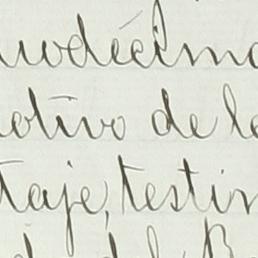 uodécimo
otivo de le
taje, testin